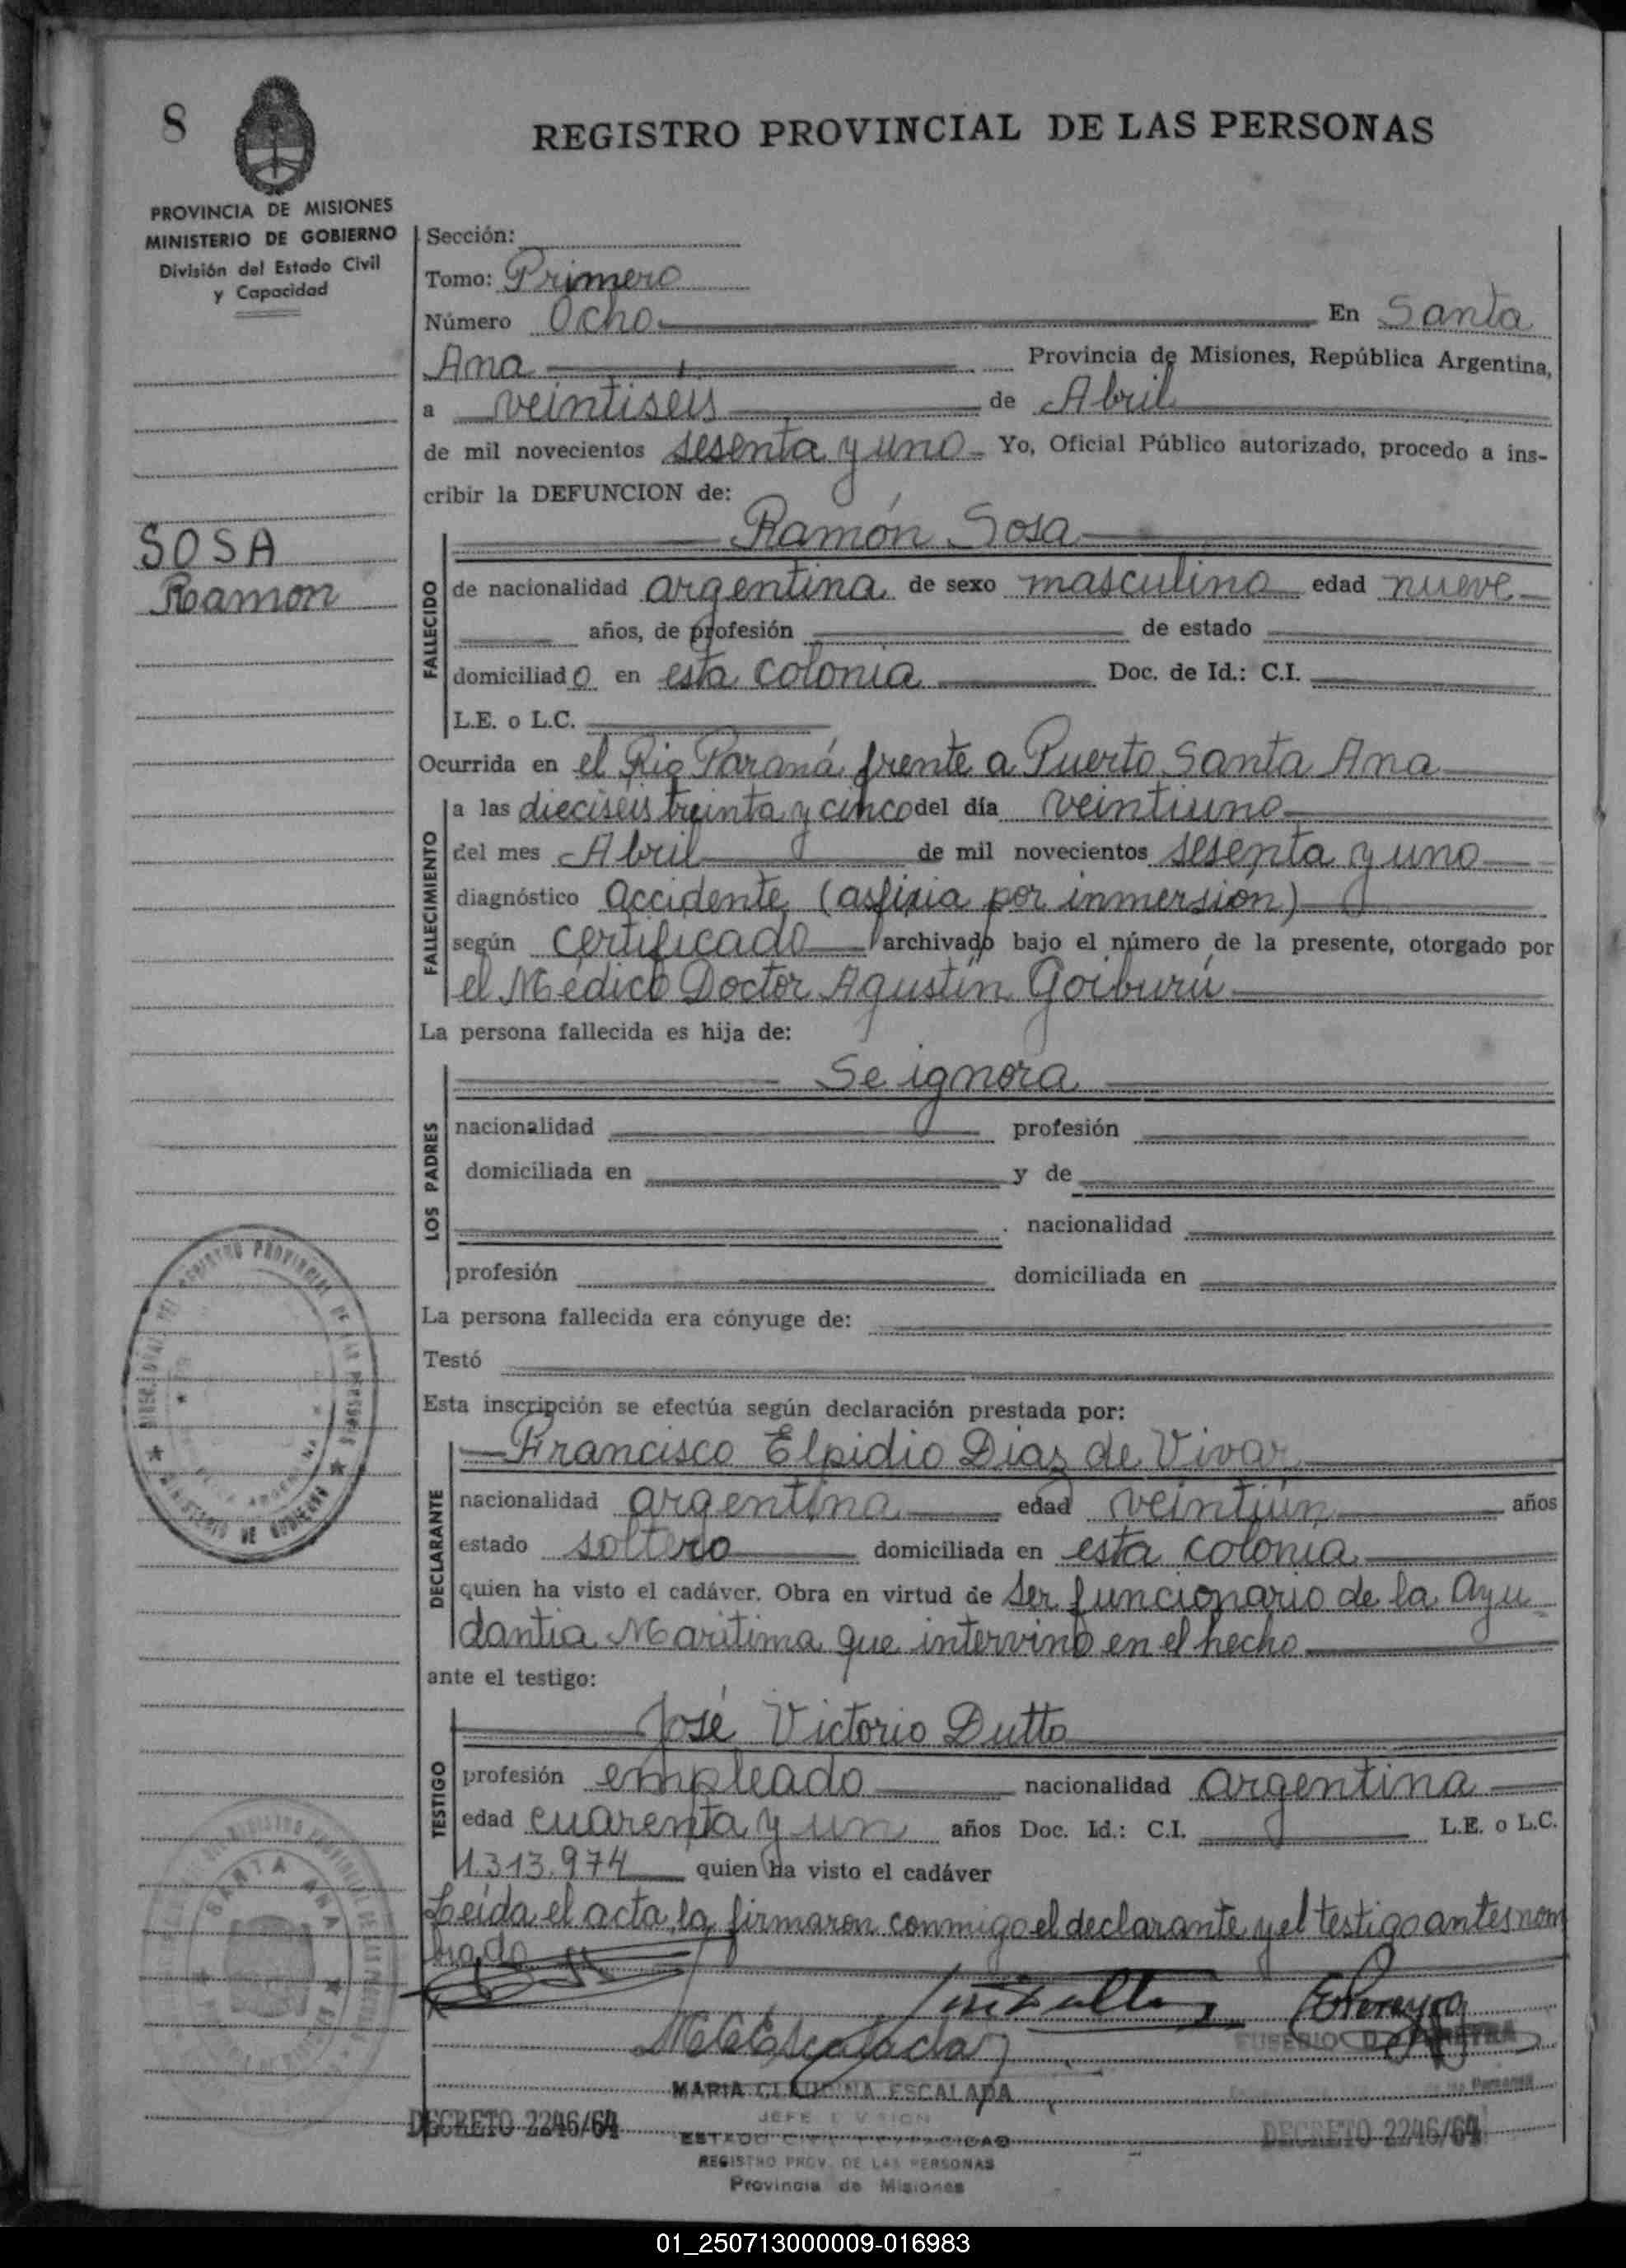 8
REGISTRO PROVINCIAL DE LAS PERSONAS
PROVINCIA DE MISIONES
MINISTERIO DE GOBIERNO
División del Estado Civil
y Capacidad
SOSA
Ramon
Sección:
Tomo: Primero
Número Ocho En Santa
Ana Provincia de Misiones, República Argentina,
a veintiseis de Abril
de mil novecientos sesenta y uno Yo, Oficial Público autorizado, procedo a ins-
cribir la DEFUNCION de:
Ramón Sosa
FALLECIDO
de nacionalidad argentina de sexo masculino edad nueve
años, de profesión de estado
domiciliado en esta colonia Doc. de Id.: C.I.
L.E. o L.C.
Ocurrida en el Rio Paraná frente a Puerto Santa Ana
FALLECIMIENTO
a las dieciseis treinta y cinco del día veintiuno
del mes Abril de mil novecientos sesenta y uno
diagnóstico accidente (asfixia por inmersion)
según certificado archivado bajo el número de la presente, otorgado por
el Médico Doctor Agustín Goiburú
La persona fallecida es hija de:
Se ignora
LOS PADRES
nacionalidad profesión
domiciliada en y de
nacionalidad
profesión domiciliada en
La persona fallecida era cónyuge de:
Testó
Esta inscripción se efectúa según declaración prestada por:
Francisco Elpidio Diaz de Vivar
DECLARANTE
nacionalidad argentina edad veintiún años
estado soltero domiciliada en esta colonia
quien ha visto el cadáver. Obra en virtud de ser funcionario de la Ayu
dantia Maritima que intervino en el hecho
ante el testigo:
José Victorio Dutto
TESTIGO
profesión empleado nacionalidad argentina
edad cuarenta y un años Doc. Id.: C.I. L.E. o L.C.
1.313.974 quien ha visto el cadáver
Leída el acta la firmaron conmigo el declarante y el testigo antes nom
brado
SANTA ANA
MARIA CLAUDINA ESCALADA
JEFE DIVISION
ESTADO CIVIL Y CAPACIDAD
REGISTRO PROV. DE LAS PERSONAS
Provincia de Misiones
DECRETO 2246/64
DECRETO 2246/64
01_250713000009-016983